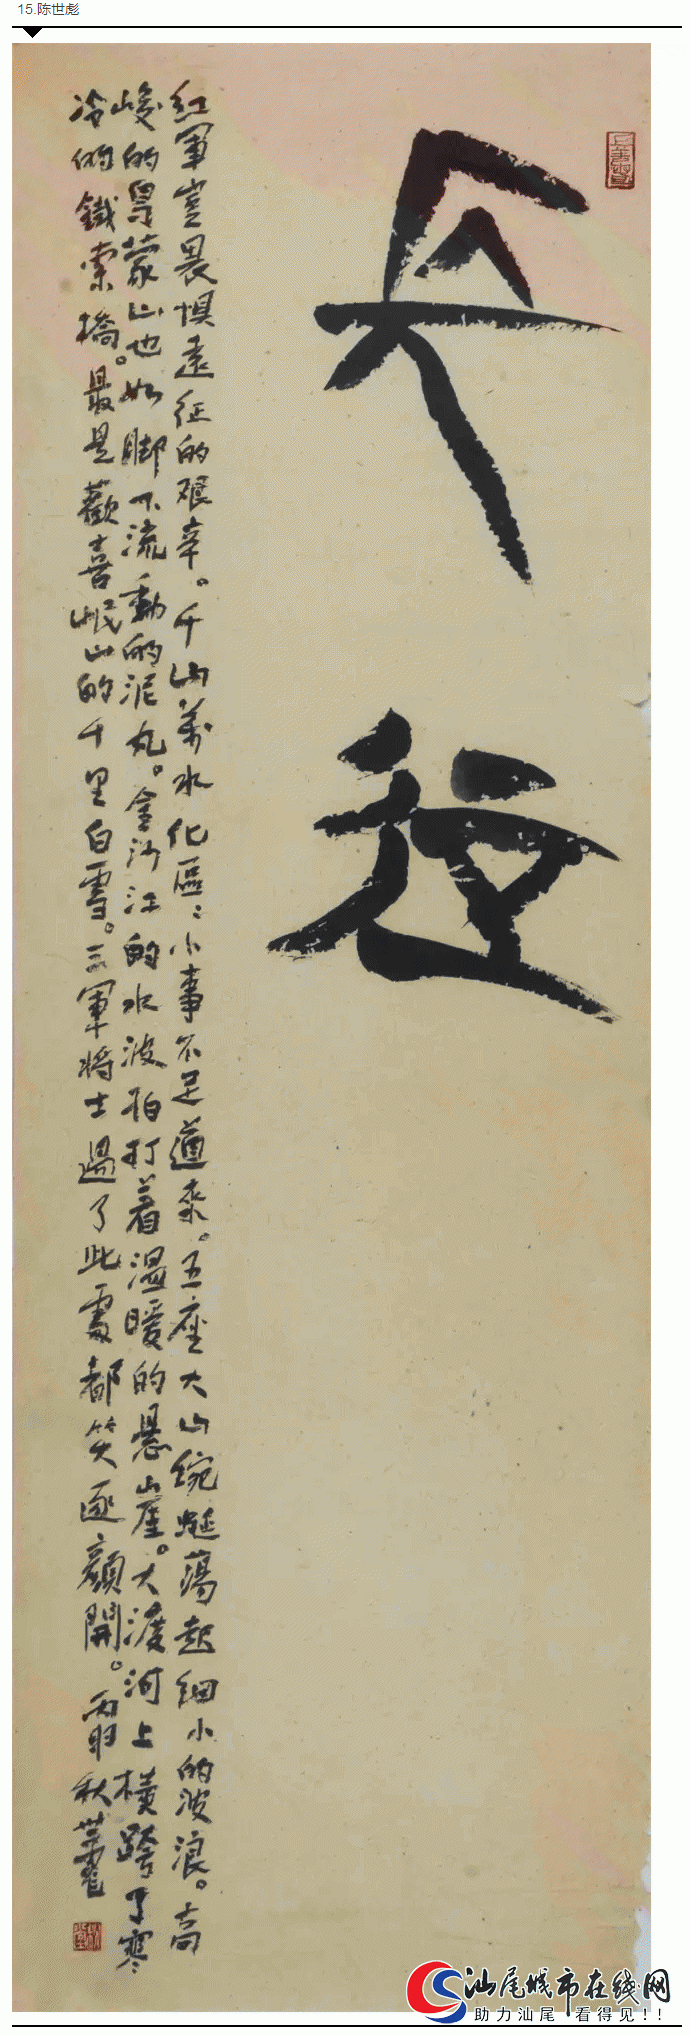 15.陈世彪
長征
红軍豈畏惧遠征的艰辛。千山萬水化區區小事不足道来。五座大山蜿蜒蕩起细小的波浪。高
峻的烏蒙山也如脚下流動的泥丸。金沙江的水波拍打着温暖的悬崖。大渡河上横跨了寒
冷的鐵索橋。最是歡喜岷山的千里白雪。三軍将士過了此處都笑逐顔開。丙申秋世彪
汕尾城市在线网
助力汕尾 看得见!!